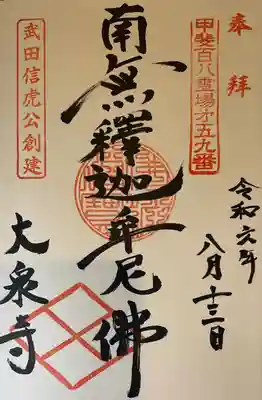 奉拝
甲斐百八霊場才五九番
令和六年
八月十三日
南無釋迦牟尼佛
武田信虎公創建
大泉寺